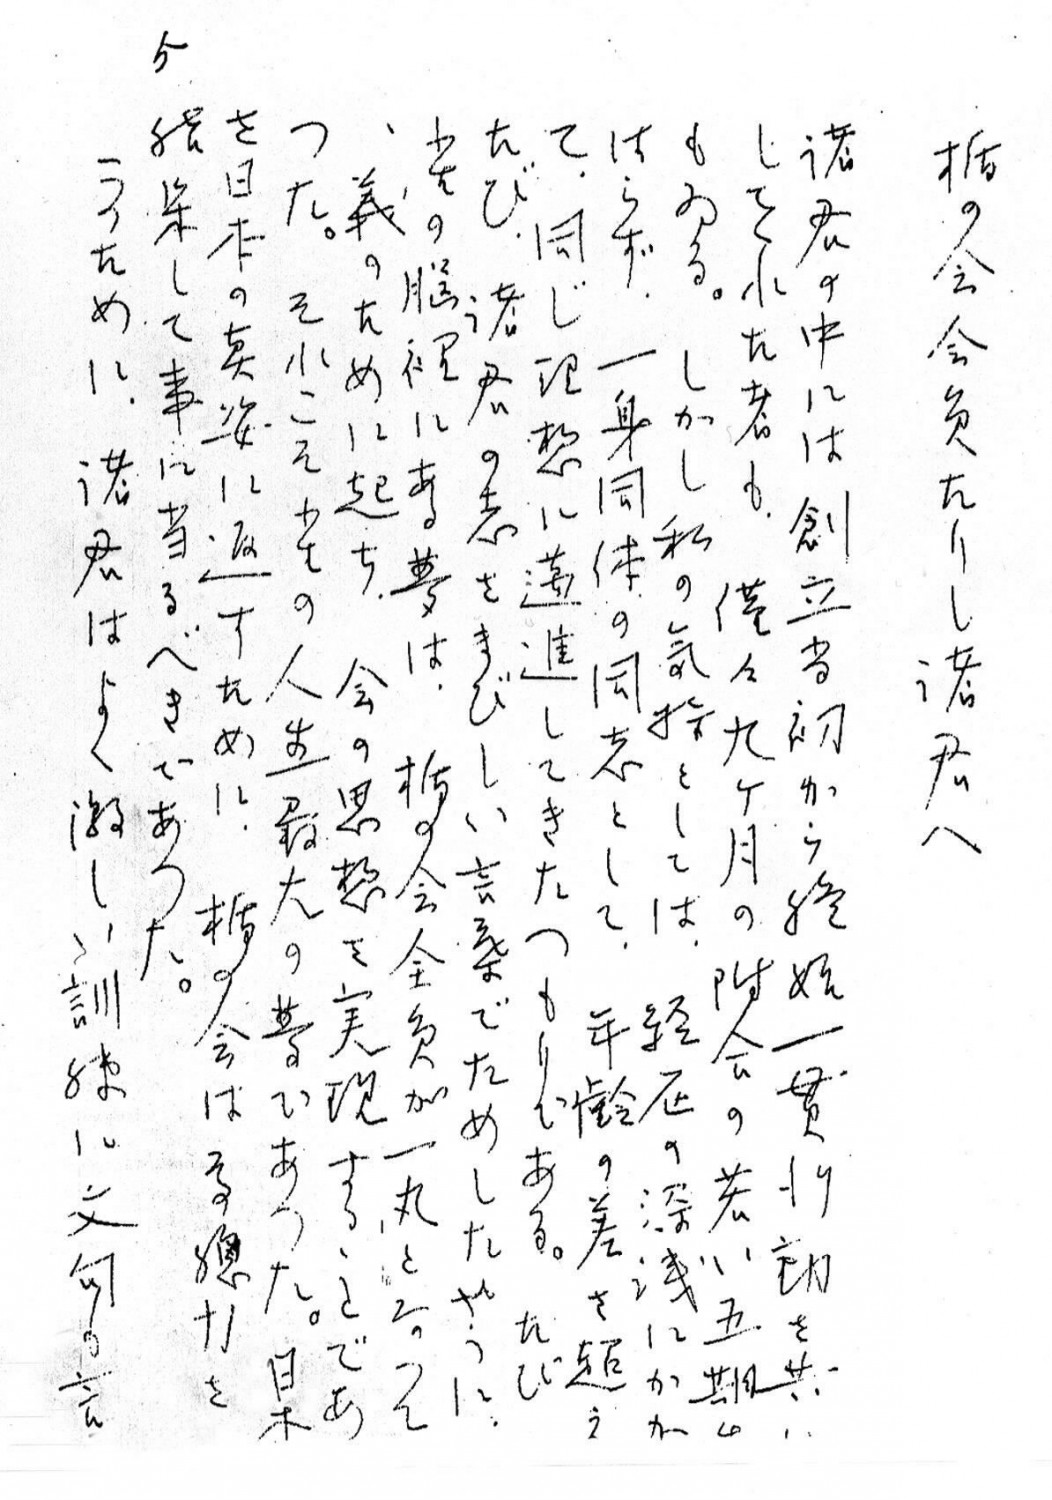 楯の会会員たりし諸君へ
諸君の中には創立当初から終始一貫行動を共に
してくれた者も、僅々九ケ月の附会の若い五期の
もゐる。しかし私の気持としては、経歴の深浅にかか
はらず、一身同体の同志として、年齢の差を超え
て、同じ理想に邁進してきたつもりである。たび
たび、諸君の志をきびしい言葉でためしたやうに、
小生の脳裡にある夢は、楯の会全員が一丸となつて
、義のために起ち、会の思想を実現することであ
つた。それこそ小生の人生最大の夢であつた。日本
を日本の真姿に返すために、楯の会はその総力を
結集して事に当るべきであつた。
このために、諸君はよく激しい訓練に文句も言